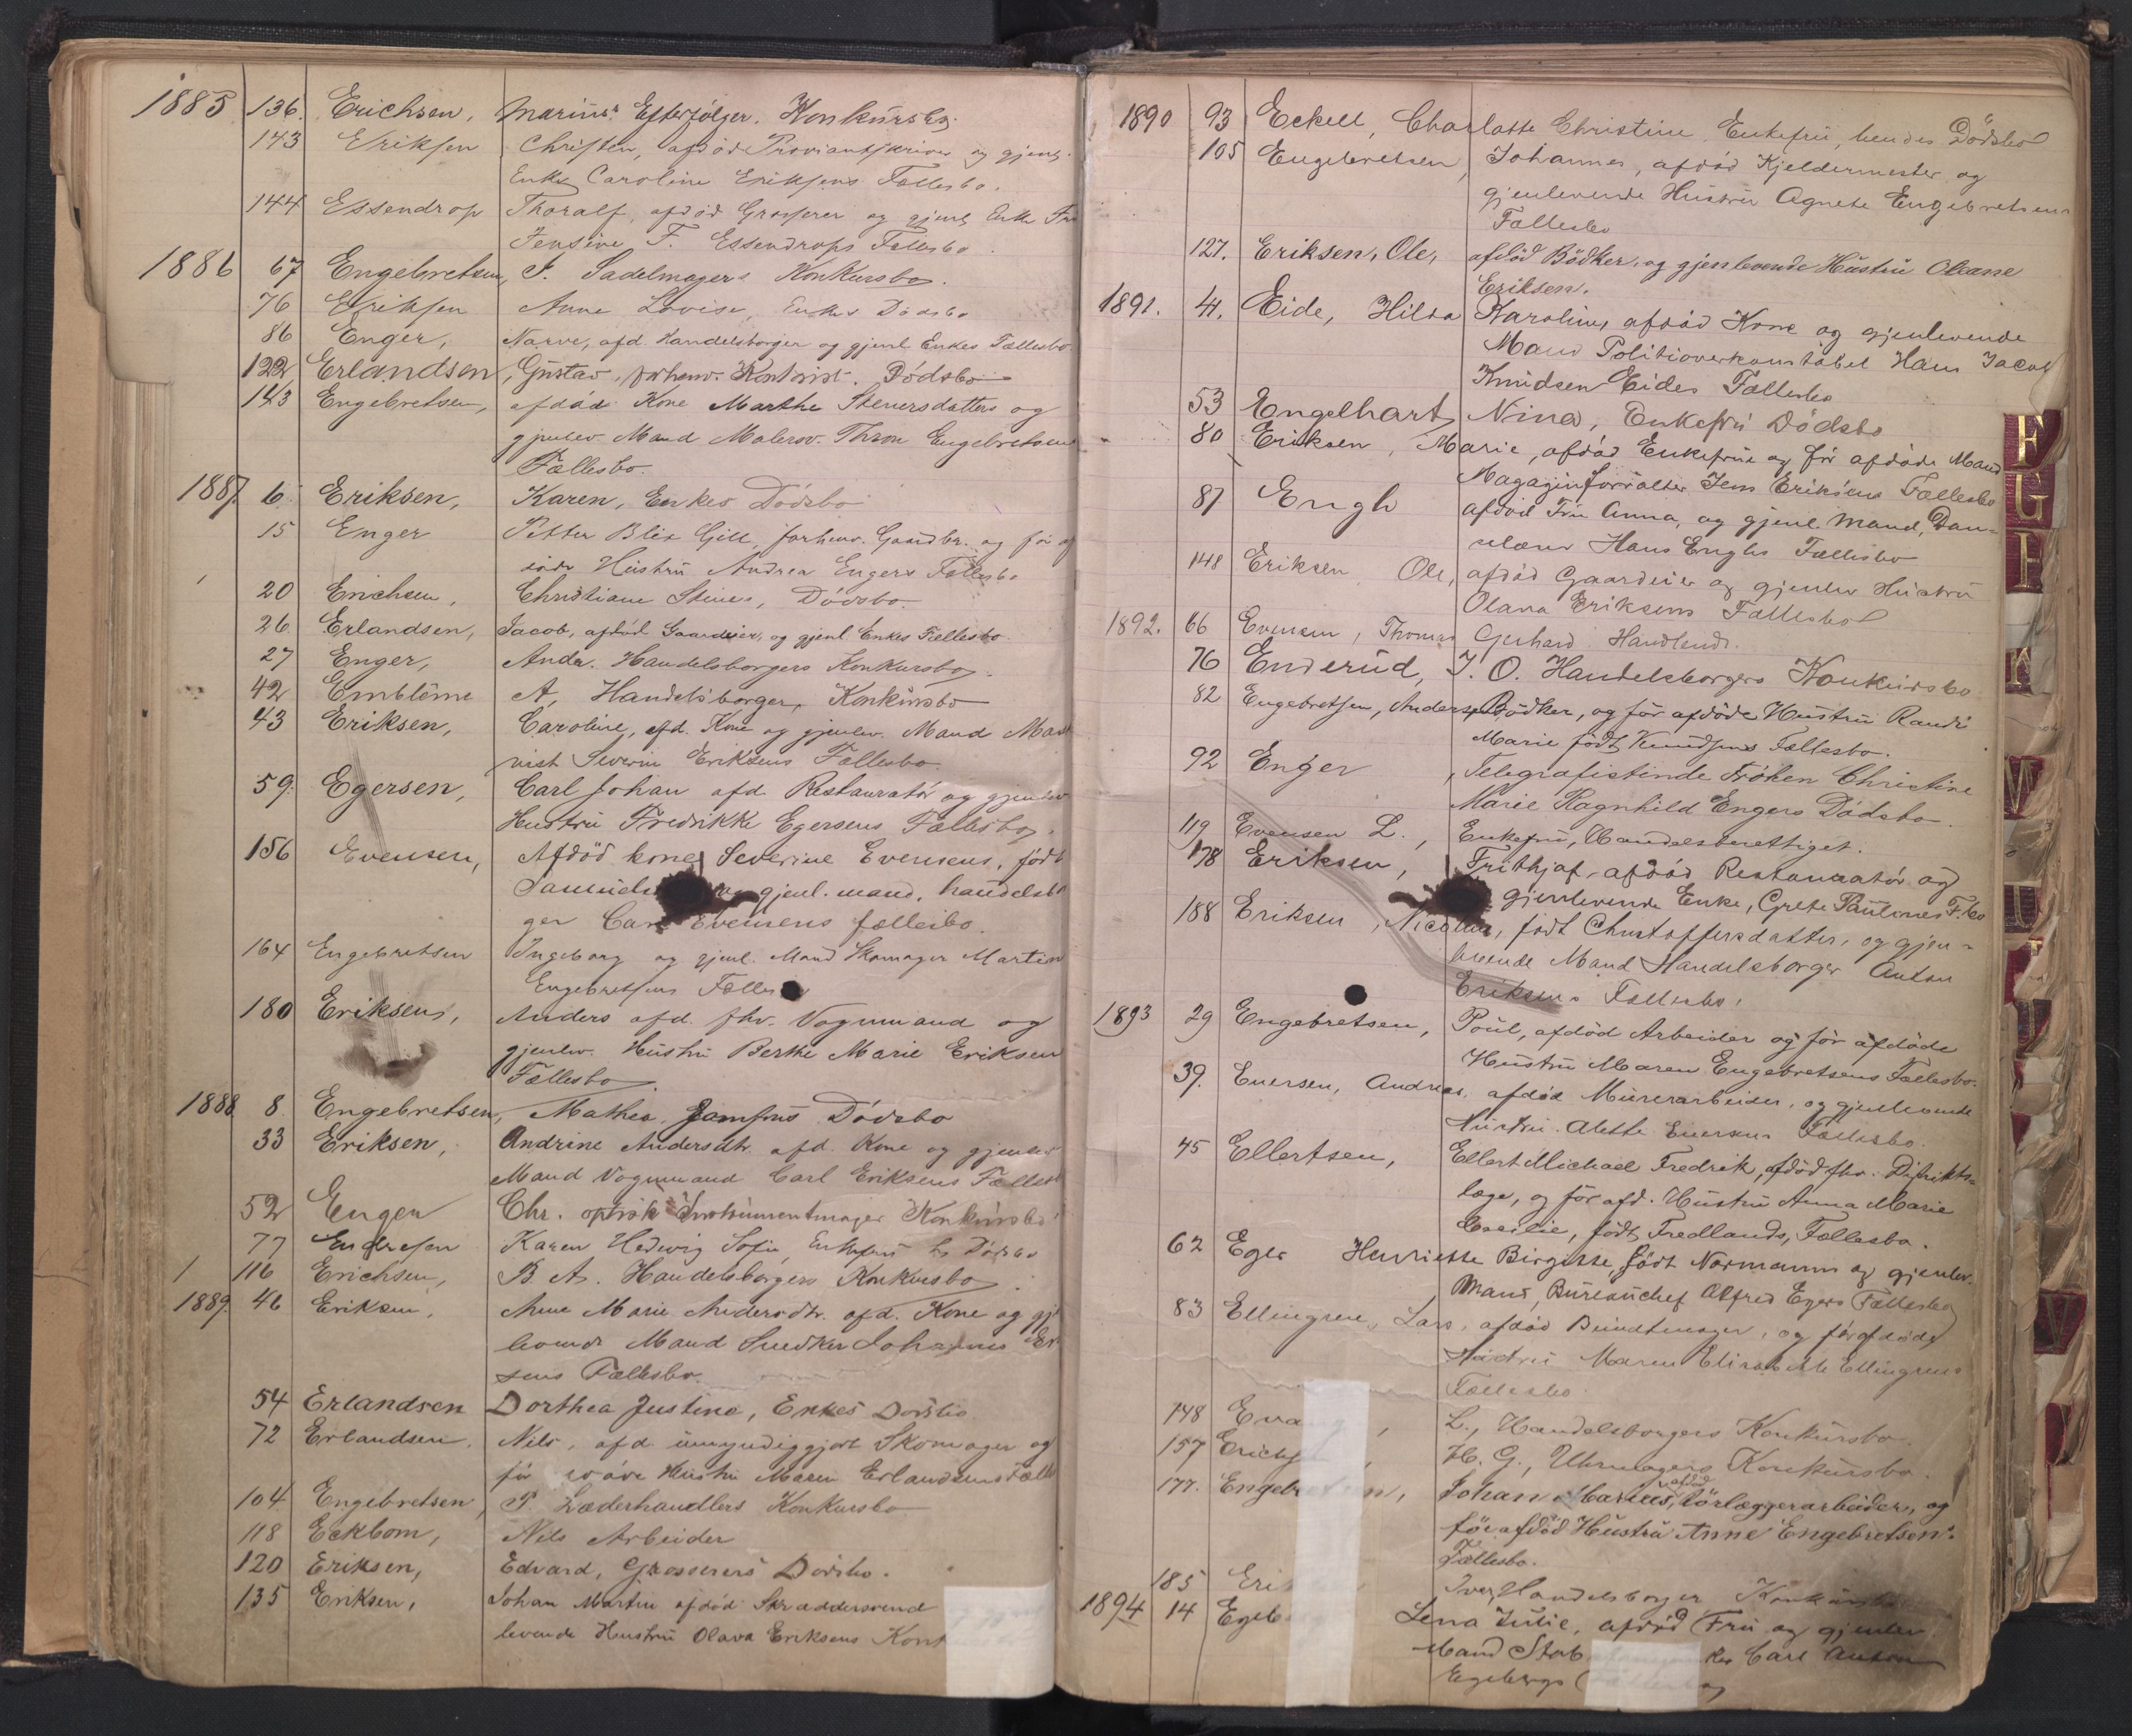 1885 136. Erichsen, Marius' Efterfølger. Konkursbo.
143 Eriksen Christen, afdød Proviantskriver og gjenl.
Enke Caroline Eriksens Fællesbo.
144 Essendrop Thoralf, afdød Grosserer og gjenl. Enke Fru
Jensine F. Essendrops Fællesbo.
1886 67 Engebretsen, P. Sadelmagers Konkursbo.
76 Eriksen Anne Lovise, Enkes Dødsbo
86 Enger, Narve, afd. Handelsborger og gjenl Enkes Fællesbo.
122 Erlandsen, Gustav, forhenv. Kontorist. Dødsbo
143 Engebretsen, afdød Kone Marthe Stenersdatters og
gjenlev. Mand Malersv. Thron Engebretsens
Fællesbo.
1887. 6 Eriksen, Karen, Enkes Dødsbo
15 Enger Petter Blix Gill, forhenv. Gaardbr. og før af
døde Hustru Andrea Engers Fællesbo
20 Erichsen, Christiane Stines, Dødsbo.
26 Erlandsen, Jacob, afdød Gaardeier, og gjenl Enkes Fællesbo.
27 Enger, Andr. Handelsborgers Konkursbo.
42 Emblême A, Handelsborger, Konkursbo
43 Eriksen, Caroline, afd. Kone og gjenlev. Mand Mas
nist Severin Eriksens Fællesbo.
59. Egersen, Carl Johan afd. Restauratør og gjenlev
Hustru Fredrikke Egersens Fællesbo.
156 Evensen, Afdød kone Severine Evensens, født
Samuels og gjenl. mand, handelsb
ger Carl Evensens fællesbo.
164 Engebretsen Ingeborg og gjenl. Mand Skomager Martin
Engebretsens Fælles
180 Eriksens, Anders afd. fhv. Vognmand og
gjenlev. Hustru Berthe Marie Eriksen
Fællesbo.
1888 8. Engebretsen, Mathea, Dødsbo
33 Eriksen, Andrine Andersdtr. afd. Kone og gjenlev
Mand Vognmand Carl Eriksens Fælles
52 Engen Chr. optisk Instrumentmager Konkursbo
77 Endresen Karen Hedwig Sofie, Enkefru Dødsbo
116 Erichsen, B. A. Handelsborgers Konkursbo
1889. 46 Eriksen, Anne Marie Andersdtr. afd. Kone og gj
levende Mand Snedker Johannes Er
sens Fællesbo.
54 Erlandsen Dorthea Justine, Enkes Dødsbo
72 Erlandsen. Nils, afd. umyndiggjort Skomager og
før døde Hustru Maren Erlandsens Fælle
104 Engebretsen, P. Læderhandlers Konkursbo
118 Eckbom, Nils Arbeider
120 Eriksen, Edvard, Grosserers Dødsbo.
135 Eriksen, Johan Martin afdød Skræddersvend
levende Hustru Olava Eriksens Kon
1890 93 Eckell, Charlotte Christine Enkefru, hendes Dødsbo
105 Engebretsen, Johannes, afdød Kjeldermester og
gjenlevende Hustru Agnete Engebretsens
Fællesbo
127. Eriksen, Ole, afdød Bødker, og gjenlevende Hustru Oleane
Eriksen.
1891. 41. Eide, Hilda Karoline, afdød Kone og gjenlevende
Mand Politioverkonstabel Hans Jacob
Knudsen Eides Fællesbo
53 Engelhart, Nina, Enkefru Dødsbo
80 Eriksen, Marie, afdød Enkefrue og før afdøde Mand
Magazinforvalter Jens Eriksens Fællesbo
87 Engh afdød Fru Anna, og gjenl. Mand, Dan-
selærer Hans Enghs Fællesbo
148 Eriksen Ole, afdød Gaardeier og gjenlev Hustru
Olava Eriksens Fællesbo
1892. 66 Evensen, Thomas Gerhard Handlende.
76 Enderud, J. O. Handelsborgers Konkursbo
82 Engebretsen, Anders, Bødker, og før afdøde Hustru Randi
Marie født Knudsens Fællesbo.
92 Enger, Telegrafistinde Frøken Christine
Marie Ragnhild Engers Dødsbo.
119 Evensen L., Enkefru, Handelsberettiget.
178 Eriksen, Frithjof, afdød Restauratør og
gjenlevende Enke, Grete Paulines F.bo
188 Eriksen, Nicoline, født Christoffersdatter, og gjen-
levende Mand Handelsborger Anton
Eriksens Fællesbo.
1893 29 Engebretsen, Poul, afdød Arbeider og før afdøde
Hustru Maren Engebretsens Fællesbo.
39. Enersen, Andreas, afdød Murerarbeider, og gjenlevende
Hustru Alette Enersens Fællesbo.
45 Ellertsen, Ellert Michael Fredrik, afdød fhv. Distrikts-
læge, og før afd. Hustru Anna Marie
Cecilie, født Fredlands, Fællesbo.
62 Eger Henriette Birgitte, født Normann og gjenlev.
Mand, Bureauchef Alfred Egers Fællesbo
83 Ellingsen, Lars, afdød Bundtmager, og før afdøde
Hustru Maren Elisabeth Ellingsens
Fællesbo.
148 Eva , L., Handelsborgers Konkursbo.
157 Erichs , H. G., Uhrmagers Konkursbo.
177. Engebretsen, Johan Marius, afdød Rørlæggerarbeider, og
før afdød Hustru Anne Engebretsens
Fællesbo.
185 Eri Iver, Handelsborger Konkursbo
1894 14 Egeb Lena Julie, afdød Fru og gjenlev.
Mand Stab ker Carl Anton
Egebergs
F
G
I
K
M
V